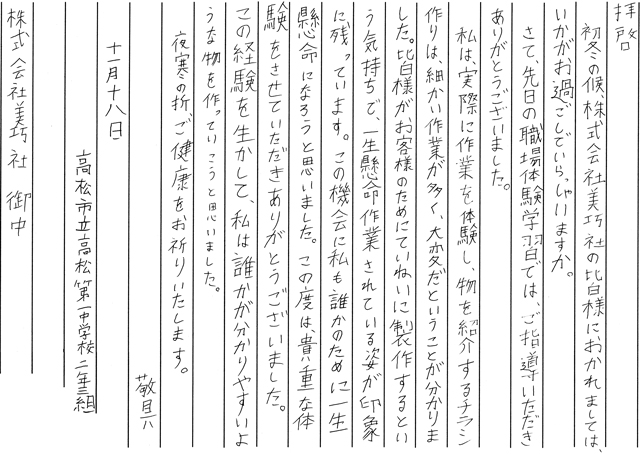 拝啓
初冬の候、株式会社美巧社の皆様におかれましては、
いかがお過ごしでいらっしゃいますか。
さて、先日の職場体験学習では、ご指導いただき
ありがとうございました。
私は、実際に作業を体験し、物を紹介するチラシ
作りは、細かい作業が多く、大変だということが分かりま
した。皆様がお客様のためにていねいに製作するとい
う気持ちで、一生懸命作業されている姿が印象
に残っています。この機会に私も誰かのために一生
懸命になろうと思いました。この度は、貴重な体
験をさせていただきありがとうございました。
この経験を生かして、私は誰かが分かりやすいよ
うな物を作っていこうと思いました。
夜寒の折、ご健康をお祈りいたします。
敬具
十一月十八日
高松市立高松第一中学校二年三組
株式会社美巧社 御中